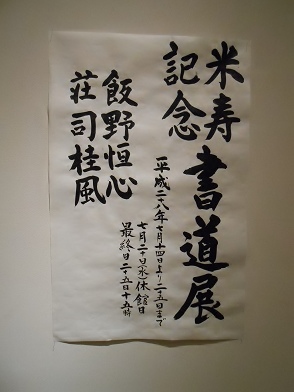 米寿
記念
書道展
平成二八年七月十四日より二五日まで
七月二十日(水)休館日
最終日二五日十五時
飯野恒心
荘司桂風